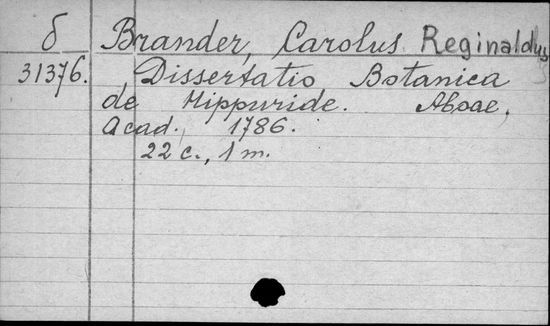 б Brander, Carolus Reginaldus
31376. Dissertatio Botanica
de Hippuride. Aboae,
Acad., 1786.
22 с., 1 т.